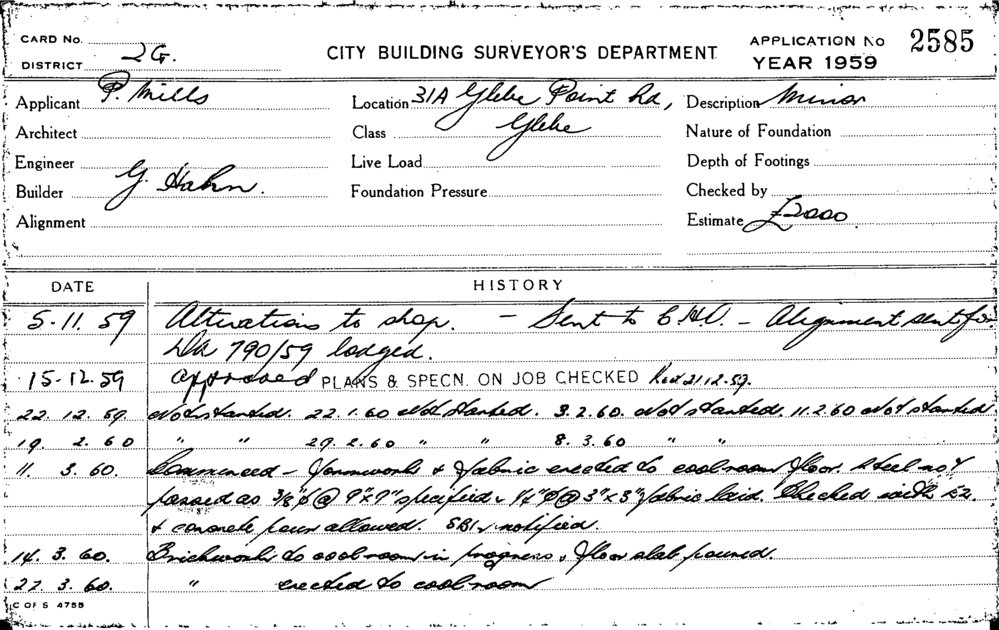 CARD No.
DISTRICT 2G.
CITY BUILDING SURVEYOR'S DEPARTMENT
APPLICATION No 2585
YEAR 1959
Applicant P. Mills
Location 31A Glebe Point Rd,
Description Minor
Architect
Class Glebe
Nature of Foundation
Engineer
Live Load
Depth of Footings
Builder G. Hahn.
Foundation Pressure
Checked by
Alignment
Estimate £2000
DATE HISTORY
5.11.59 Alterations to shop. - Sent to C.H.O. - Alignment sent for
DA 790/59 lodged.
15.12.59 Approved PLANS & SPECN. ON JOB CHECKED 21.12.59.
22.12.59. Not started. 22.1.60 Not started. 3.2.60. Not started. 11.2.60 Not started
19. 2. 60 " " 29.2.60 " " 8.3.60 " "
11. 3.60. Commenced - Formwork & fabric erected to coolroom floor. Steel not
passed as 3/8"ø @ 9"x9" specified & 1/4"ø @ 3"x3" fabric laid. Checked with
& concrete pour allowed. notified.
14. 3.60. Brickwork to coolroom in progress & floor slab poured.
27. 3.60. " erected to coolroom
C OF S 4755